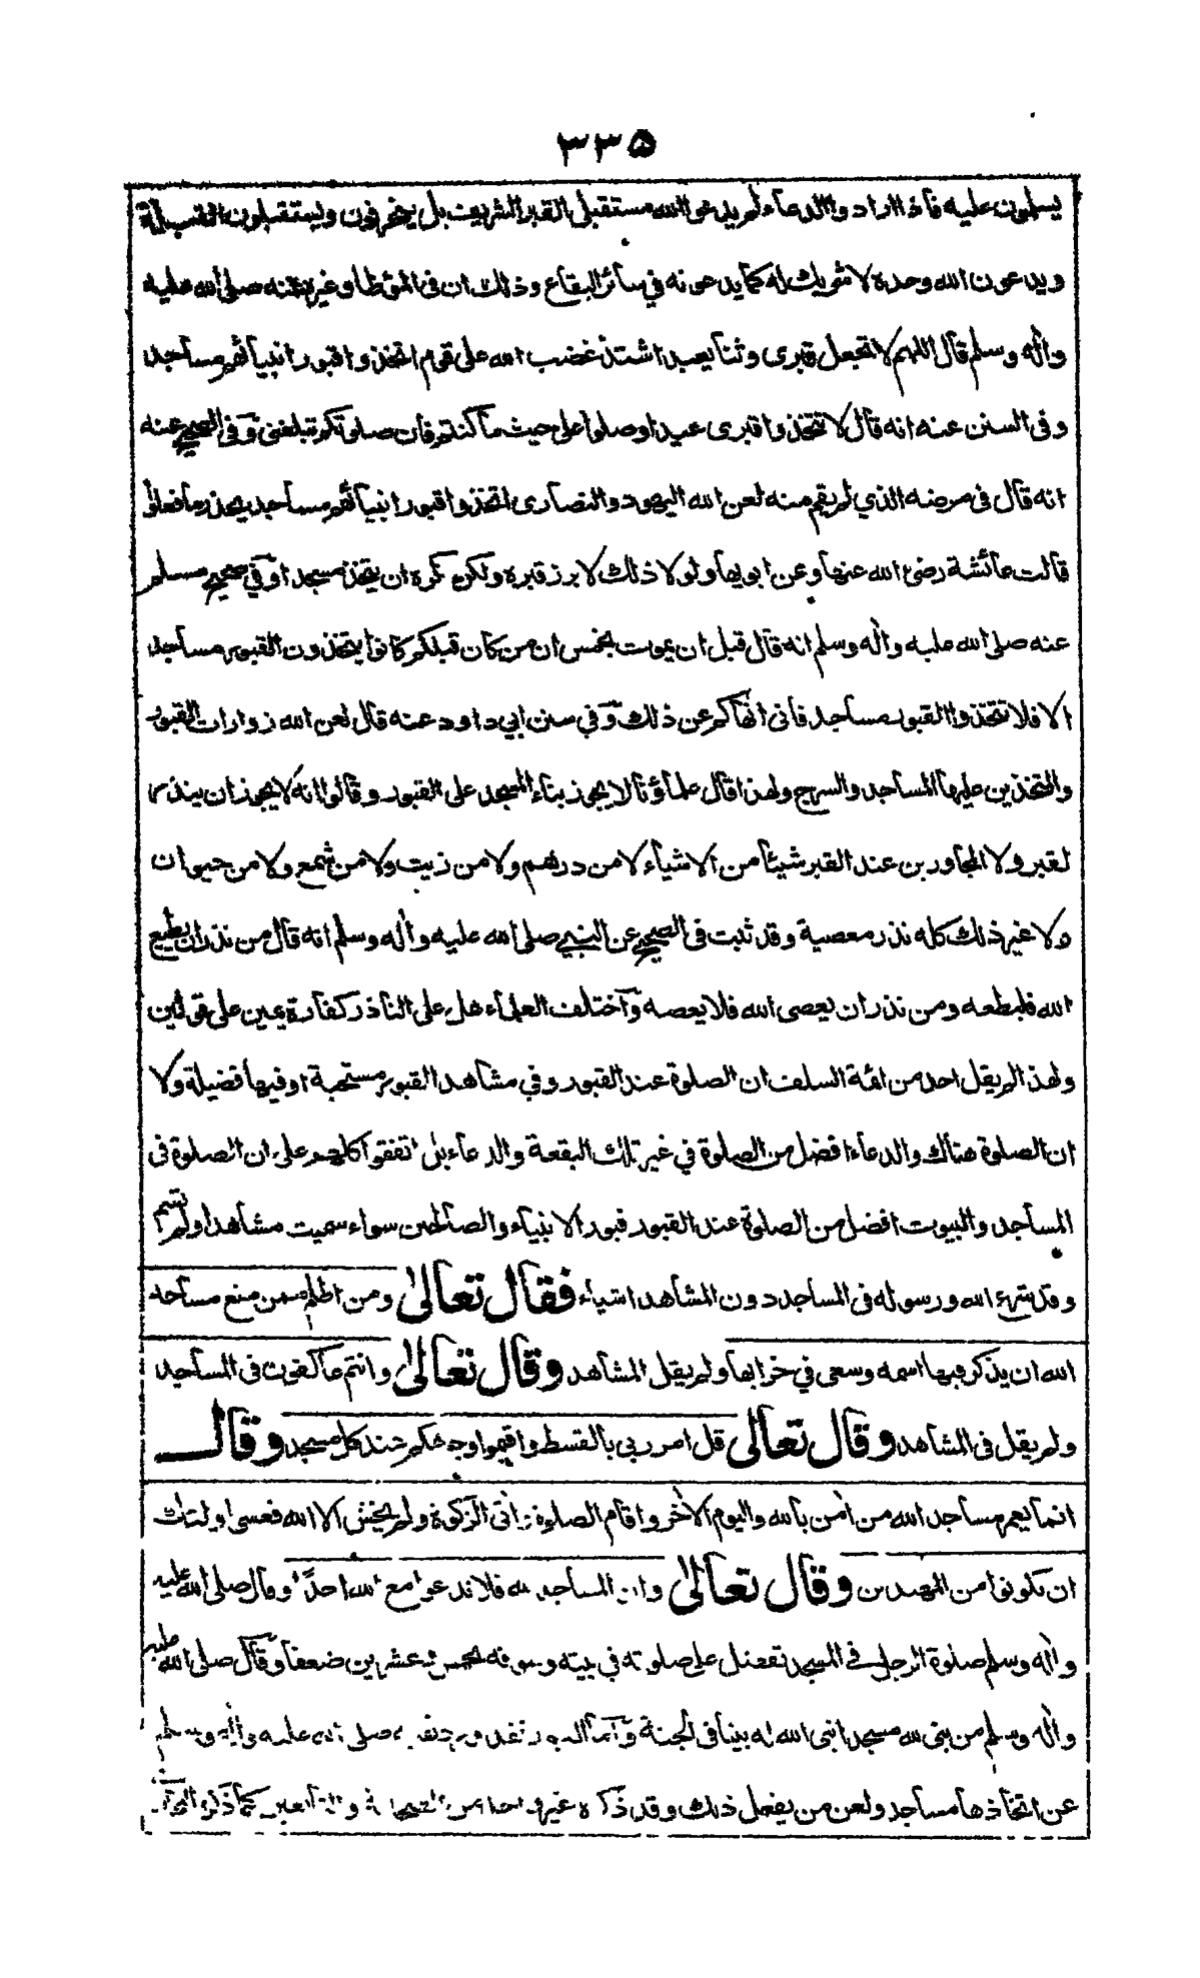 ٣٣٥
يسلمون عليه فاذا ارادوا الدعاء لم يدعوا الله مستقبلي القبر الشريف بل ينحرفون ويستقبلون القبلة
ويدعون الله وحده لا شريك له كما يدعونه في سائر البقاع وذلك ان في المؤطا وغيره عنه صلى الله عليه
واٰله وسلم قال اللهم لا تجعل قبرى وثنا يعبد اشتد غضب الله على قوم اتخذوا قبور انبيائهم مساجد
وفى السنن عنه انه قال لا تتخذوا قبرى عيدا وصلوا على حيث ما كنتم فان صلوتكم تبلغنى وفى الصحيح عنه
انه قال فى مرضه الذي لم يقم منه لعن الله اليهود والنصارى اتخذوا قبور انبيائهم مساجد يحذر ما فعلوا
قالت عائشة رضى الله عنها وعن ابويها ولولا ذلك لابرز قبره ولكن كره ان يتخذ مسجدا وفي صحيح مسلم
عنه صلى الله عليه واٰله وسلم انه قال قبل ان يموت بخمس ان من كان قبلكم كانوا يتخذون القبور مساجد
الا فلا تتخذوا القبور مساجد فانى انهاكم عن ذلك وفي سنن ابي داود عنه قال لعن الله زوارات القبور
والمتخذين عليها المساجد والسرج ولهذا قال علماؤنا لا يجوز بناء المسجد على القبور وقالوا انه لا يجوز ان ينذر
لقبر ولا المجاورين عند القبر شيئا من الاشياء لا من درهم ولا من زيت ولا من شمع ولا من حيوان
ولا غير ذلك كله نذر معصية وقد ثبت فى الصحيح عن النبي صلى الله عليه واٰله وسلم انه قال من نذر ان يطيع
الله فليطعه ومن نذر ان يعصى الله فلا يعصه واختلف العلماء هل على الناذر كفارة يمين على قولين
ولهذا لم يقل احد من ائمة السلف ان الصلوة عند القبور وفي مشاهد القبور مستحبة او فيها فضيلة ولا
ان الصلوة هناك والدعاء افضل من الصلوة في غير تلك البقعة والدعاء بل اتفقوا كلهم على ان الصلوة فى
المساجد والبيوت افضل من الصلوة عند القبور قبور الانبياء والصالحين سواء سميت مشاهد او لم تسم
وقد شرع الله ورسوله فى المساجد دون المشاهد اشياء فقال تعالىٰ ومن اظلم ممن منع مساجد
الله ان يذكر فيها اسمه وسعى في خرابها ولم يقل المشاهد وقال تعالىٰ وانتم عاكفون فى المساجد
ولم يقل فى المشاهد وقال تعالى قل امر ربي بالقسط واقيموا وجوهكم عند كل مسجد وقال
انما يعمر مساجد الله من اٰمن بالله واليوم الاٰخر واقام الصلوة واٰتى الزكوة ولم يخش الا الله فعسى اولئك
ان يكونوا من المهتدين وقال تعالىٰ وان المساجد لله فلا تدعوا مع الله احدًا وقال صلى الله عليه
واٰله وسلم صلوة الرجل فى المسجد تفضل على صلوته في بيته وسوقه بخمس وعشرين ضعفا وقال صلى الله عليه
واٰله وسلم من بنى لله مسجدا بنى الله له بيتا فى الجنة واما القبور فقد ورد نهيه صلى الله عليه واٰله وسلم
عن اتخاذها مساجد ولعن من يفعل ذلك وقد ذكره غير واحد من الصحابة والتابعين كما ذكره